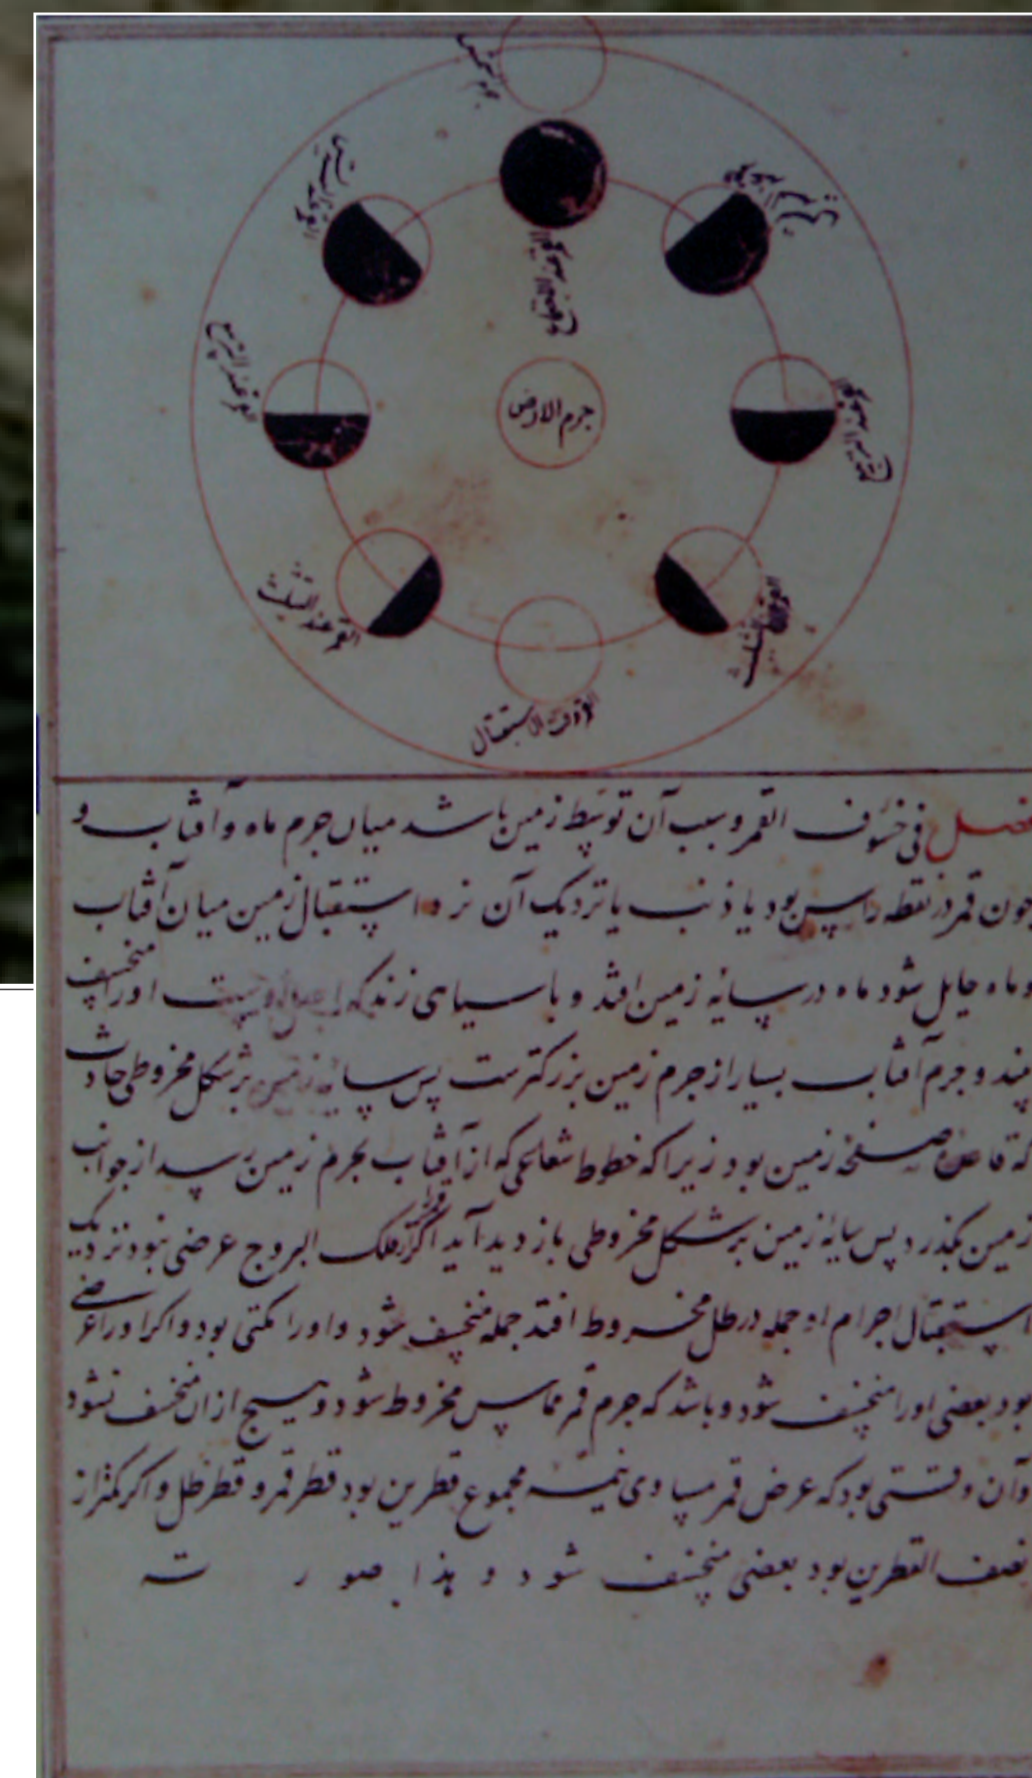 جرم الشمس
القمر عند التربيع
جرم الارض
القمر عند التثليث
فصل فی خسوف القمر و سبب آن توسط زمین باشد میان جرم ماه و آفتاب و
چون قمر در نقطه راس بود یا ذنب یا نزدیک آن نزد استقبال زمین میان آفتاب
و ماه حایل شود ماه در سایه زمین افتد و با سیاهی زند که اورا منخسف
بیند و جرم آفتاب بسیار از جرم زمین بزرکترست پس سایه زمین بر شکل مخروطی حادث
که قاعده صفحه زمین بود زیرا که خطوط شعاعی که از آفتاب بجرم زمین رسد از جوانب
زمین بکذرد پس سایه زمین بر شکل مخروطی بازدید آید اکر از فلک البروج عرضی نبود نزدیک
استقبال اجرام او جمله در ظل مخروط افتد جمله منخسف شود و اورا مکثی بود و اکر اورا عرضی
بود بعضی اورا منخسف شود و باشد که جرم قمر مماس مخروط شود و هیچ از ان منخسف نشود
و آن وقتی بود که عرض قمر مساوی نیمه مجموع قطرین بود قطر قمر و قطر ظل و اکر کمتر از
نصف القطرین بود بعضی منخسف شود و هذا صورته